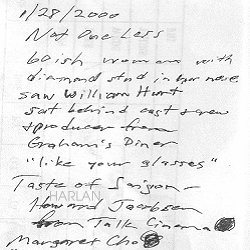 1/28/2000
Not One Less
boish woman with
diamond stud in her nose
saw William Hurt
sat behind cast & crew
& producer from
Graham's Diner
"like your glasses"
Taste of Saigon -
HARLAN
Howard Jacobson
from Talk Cinema
Margaret Cho